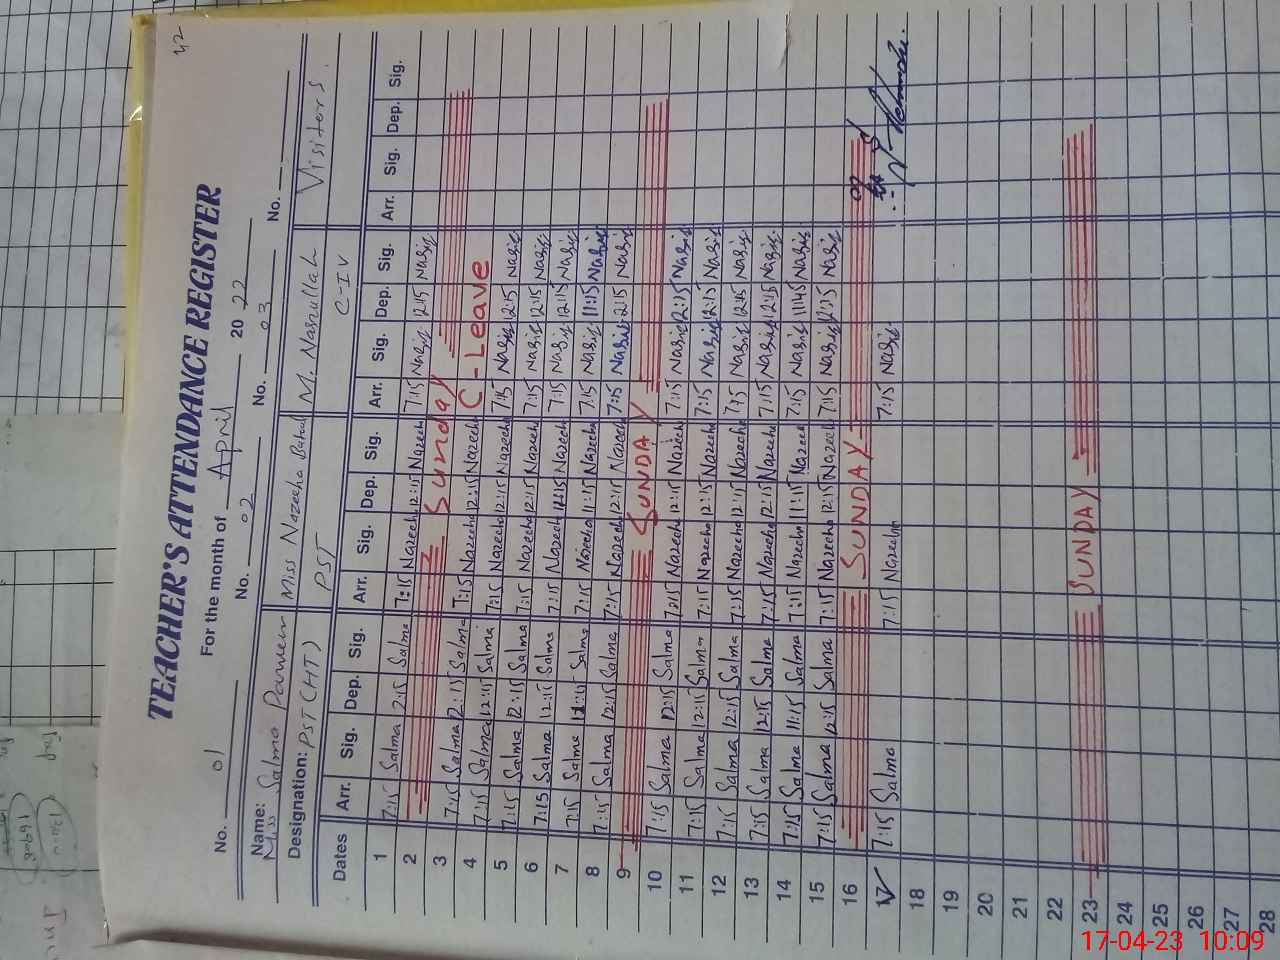 42
TEACHER'S ATTENDANCE REGISTER
For the month of April 2022
No. 01 No. 02 No. 03 No.
Name: Miss Salma Parveen Miss Nazeeha M. Nasrullah Visitors
Designation: PST (HT) PST C-IV
Dates Arr. Sig. Dep. Sig. Arr. Sig. Dep. Sig. Arr. Sig. Dep. Sig. Arr. Sig. Dep. Sig.
1 7:15 Salma 2:15 Salma 7:15 Nazeeha 12:15 Nazeeha 7:15 Nasir 12:15 Nasir
2 Sunday
3 7:15 Salma 12:15 Salma 7:15 Nazeeha 12:15 Nazeeha C-Leave
4 7:15 Salma 12:15 Salma 7:15 Nazeeha 12:15 Nazeeha 7:15 Nasir 12:15 Nasir
5 7:15 Salma 12:15 Salma 7:15 Nazeeha 12:15 Nazeeha 7:15 Nasir 12:15 Nasir
6 7:15 Salma 12:15 Salma 7:15 Nazeeha 12:15 Nazeeha 7:15 Nasir 12:15 Nasir
7 7:15 Salma 11:15 Salma 7:15 Nazeeha 11:15 Nazeeha 7:15 Nasir 11:15 Nasir
8 7:15 Salma 12:15 Salma 7:15 Nazeeha 12:15 Nazeeha 7:15 Nasir 2:15 Nasir
9 SUNDAY
10 7:15 Salma 12:15 Salma 7:15 Nazeeha 12:15 Nazeeha 7:15 Nasir 12:15 Nasir
11 7:15 Salma 12:15 Salma 7:15 Nazeeha 12:15 Nazeeha 7:15 Nasir 12:15 Nasir
12 7:15 Salma 12:15 Salma 7:15 Nazeeha 12:15 Nazeeha 7:15 Nasir 12:15 Nasir
13 7:15 Salma 12:15 Salma 7:15 Nazeeha 12:15 Nazeeha 7:15 Nasir 12:15 Nasir
14 7:15 Salma 11:15 Salma 7:15 Nazeeha 11:15 Nazeeha 7:15 Nasir 11:45 Nasir
15 7:15 Salma 12:15 Salma 7:15 Nazeeha 12:15 Nazeeha 7:15 Nasir 12:15 Nasir
16 SUNDAY
17 7:15 Salma 7:15 Nazeeha 7:15 Nasir
18
19
20
21
22
23 SUNDAY
24
25
26
27
28
17-04-23 10:09